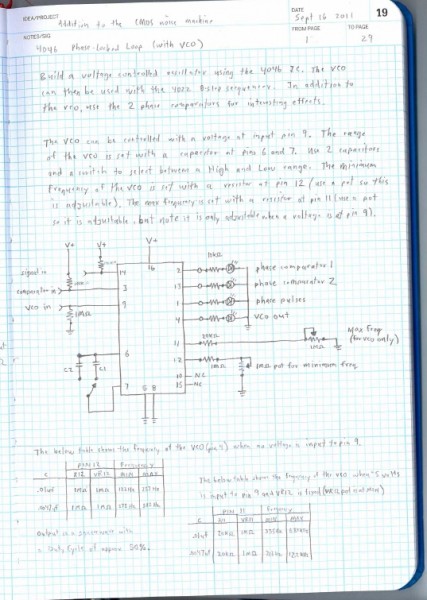 IDEA/PROJECT
Addition to the CMOS noise machine
DATE
Sept 16 2011
19
NOTES/SIG
4046 Phase-Locked Loop (with VCO)
FROM PAGE
1
TO PAGE
29
Build a voltage controlled oscillator using the 4046 IC. The VCO
can then be used with the 8-step sequencer. In addition to
the VCO, use the 2 phase comparators for interesting effects.
The VCO can be controlled with a voltage at input pin 9. The range
of the VCO is set with a capacitor at pins 6 and 7. Use 2 capacitors
and a switch to select between a High and Low range. The minimum
frequency of the VCO is set with a resistor at pin 12 (use a pot so this
is adjustable). The max frequency is set with a resistor at pin 11 (use a pot
so it is adjustable, but note it is only adjustable when a voltage is at pin 9).
V+
V+
V+
16
signal in
14
comparator in
3
VCO in
9
1MΩ
10kΩ
2
phase comparator 1
13
phase comparator 2
1
phase pulses
4
VCO out
11
1MΩ
Max Freq
(for VCO only)
12
1MΩ
1MΩ pot for minimum freq
10
NC
15
NC
6
C2
C1
7
5 8
The below table shows the frequency of the VCO (pin 4) when no voltage is input to pin 9.
PIN 12
Frequency
C
R12
VR12
MIN
MAX
1MΩ
1MΩ
1MΩ
1MΩ
Output is a squarewave with
a Duty Cycle of approx 50%.
The below table shows the frequency of the VCO when 5 volts
is input to pin 9 and VR12 is fixed
PIN 11
Frequency
C
VR11
MIN
MAX
1MΩ
1MΩ